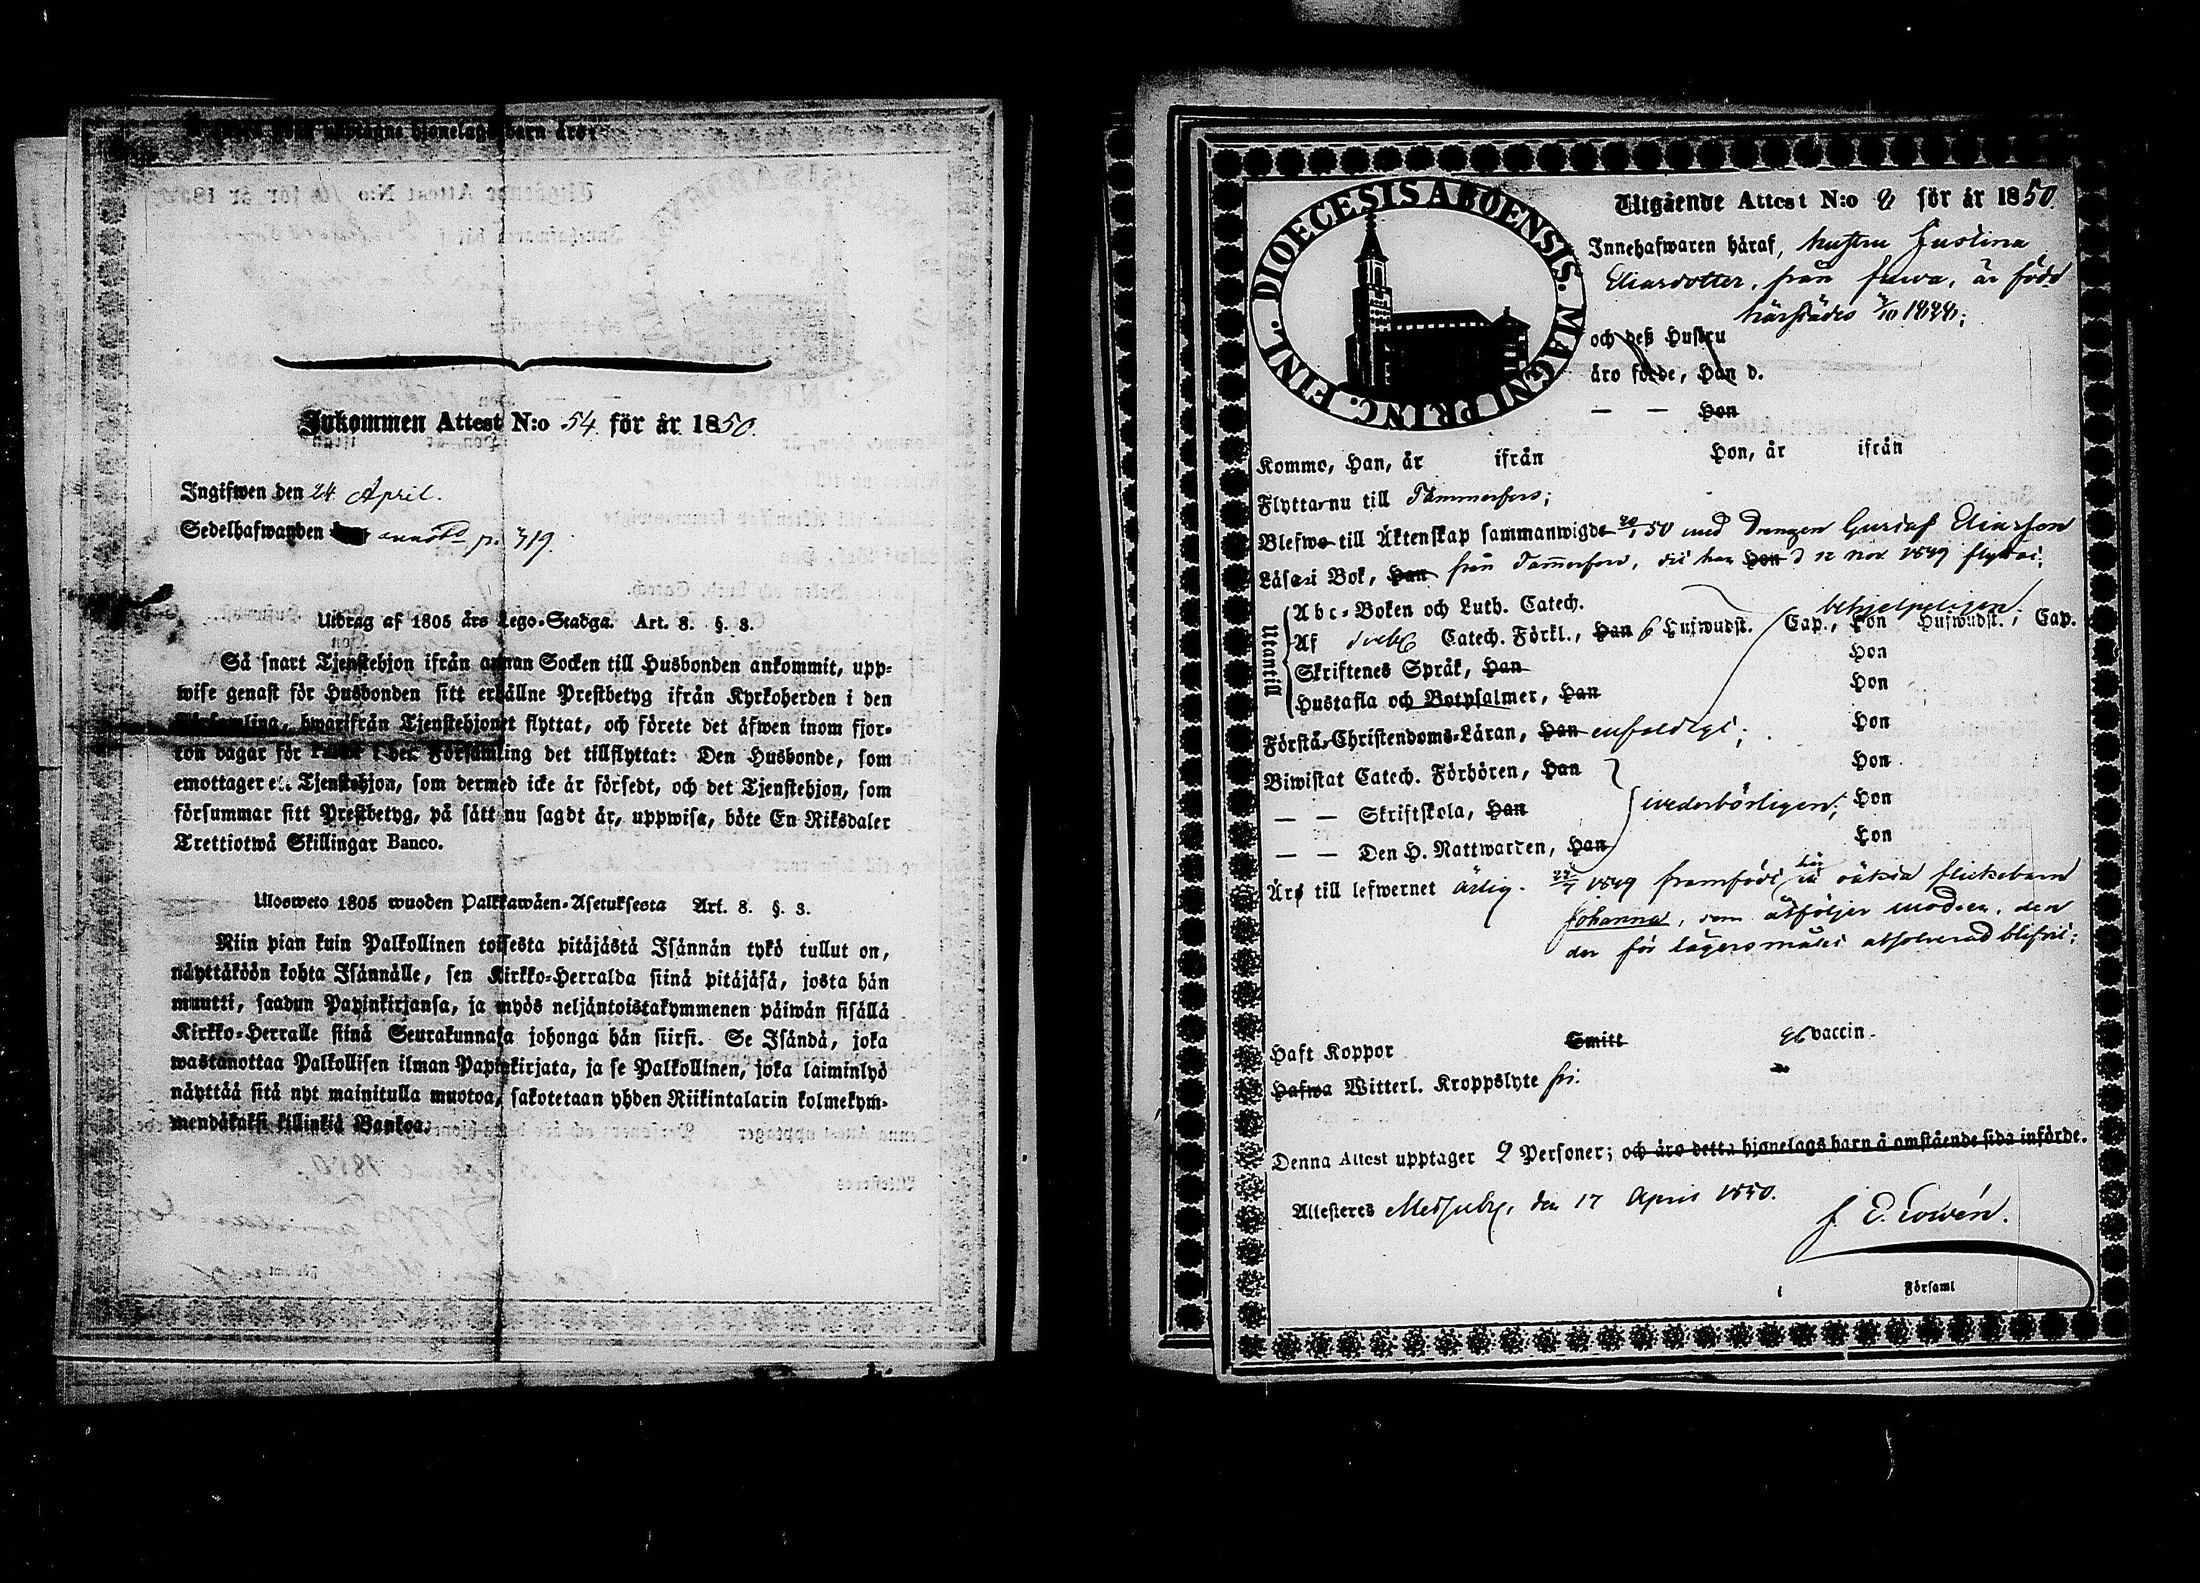 Inkommen Attest N:o 54 för år 1850.
Ingifwen den 24 April.
Sedelhafwanden annot p. 719.
Utdrag af 1805 års Lego-Stadga. Art. 8. §. 3.
Så snart Tjenstehjon ifrån annan Socken till Husbonden ankommit, upp-
wise genast för Husbonden sitt erhållne Prestbetyg ifrån Kyrkoherden i den
Församling, hwarifrån Tjenstehjonet flyttat, och förete det äfwen inom fjor-
ton dagar för i den Församling det tillflyttat: Den Husbonde, som
emottager ett Tjenstehjon, som dermed icke är försedt, och det Tjenstehjon, som
försummar sitt Prestbetyg, på sätt nu sagdt är, uppwisa, böte En Riksdaler
Trettiotwå Skillingar Banco.
Ulosweto 1805 wuoden Palkkawäen-Asetuksesta Art. 8. §. 3.
Niin pian kuin Palkollinen toisesta pitäjästä Isännän tykö tullut on,
näyttäköön kohta Isännälle, sen Kirkko-Herralda siinä pitäjäsä, josta hän
muutti, saadun Papinkirjansa, ja myös neljäntoistakymmenen päiwän sisällä
Kirkko-Herralle siinä Seurakunnasa johonga hän siirsi. Se Isändä, joka
wastanottaa Palkollisen ilman Papinkirjata, ja se Palkollinen, joka laiminlyö
näyttää sitä nyt mainitulla muotoa, sakotetaan yhden Riikintalarin kolmekym-
mendäkaksi killinkiä Bankoa.
DIOECESIS ABOENSIS. MAGNI PRINC. FINL.
Utgående Attest N:o 2 för år 1850.
Innehafwaren häraf, hustru Justina
Eliasdotter, från Juwa, är född
härstädes
och deß Hustru
äro födde, Han d.
— — Hon
Kommo, Han, år ifrån Hon, år ifrån
Flyttar nu till Tammerfors;
Blefwo till Äktenskap sammanwigde 50 med Drengen Gustaf Eliasson
Läser i Bok, Han från Tammerfors, dit han Hon d 12 nov 1849 flyttat;
Utantill
Abc-Boken och Luth. Catech. behjelpeligen.
Af Catech. Förkl., Han 6 Hufwudst. Cap., Hon Hufwudst., Cap.
Skriftenes Språk, Han Hon
Hustafla och Botpsalmer, Han Hon
Förstår Christendoms-Läran, Han enfaldigt; Hon
Biwistat Catech. Förhören, Han Hon
— — Skriftskola, Han wederbörligen; Hon
— — Den H. Nattwarden, Han Hon
Äro till lefwernet ärlig. 1849 framfödt här oäkta flickebarn
Johanna, som åtföljer modren, den
der för lägersmålet absolverad blifvit;
Haft Koppor Smitt vaccin.
Hafwa Witterl. Kroppslyte fri.
Denna Attest upptager 2 Personer; och äro detta hjonelags barn å omstående sida införde.
Attesteres den 17 April 1850.
Församl